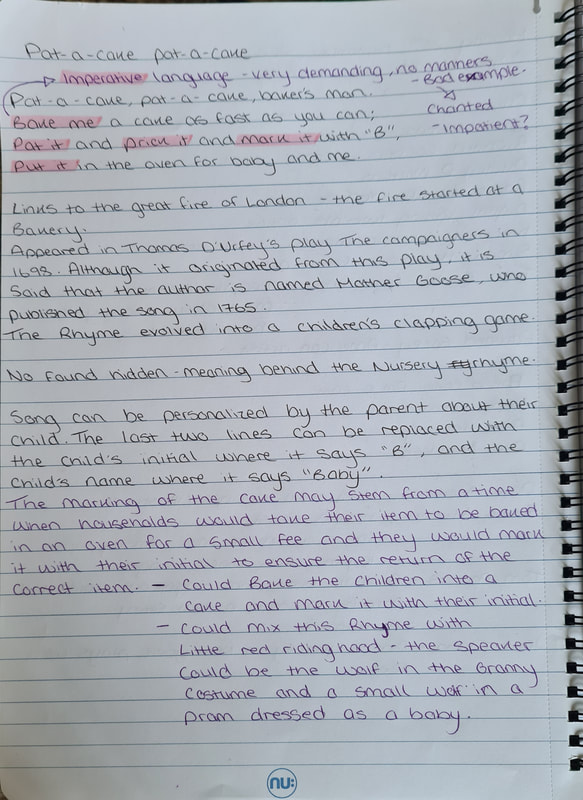 Pat-a-cake pat-a-cake
Imperative language - very demanding, no manners
- Bad example.
Pat-a-cake, pat-a-cake, baker's man.
chanted
Bake me a cake as fast as you can;
- Impatient?
Pat it and prick it and mark it with "B",
Put it in the oven for baby and me.
Links to the great fire of London - the fire started at a
Bakery.
Appeared in Thomas D'Urfey's play The campaigners in
1698. Although it originated from this play, it is
said that the author is named Mother Goose, who
published the song in 1765.
The Rhyme evolved into a children's clapping game.
No found hidden-meaning behind the Nursery rhyme.
Song can be personalized by the parent about their
child. The last two lines can be replaced with
the child's initial where it says "B", and the
child's name where it says "Baby".
The marking of the cake may stem from a time
when households would take their item to be baked
in an oven for a small fee and they would mark
it with their initial to ensure the return of the
correct item. - Could Bake the children into a
cake and mark it with their initial.
- Could mix this Rhyme with
Little red riding hood - the speaker
could be the wolf in the Granny
costume and a small wolf in a
pram dressed as a baby.
nu: